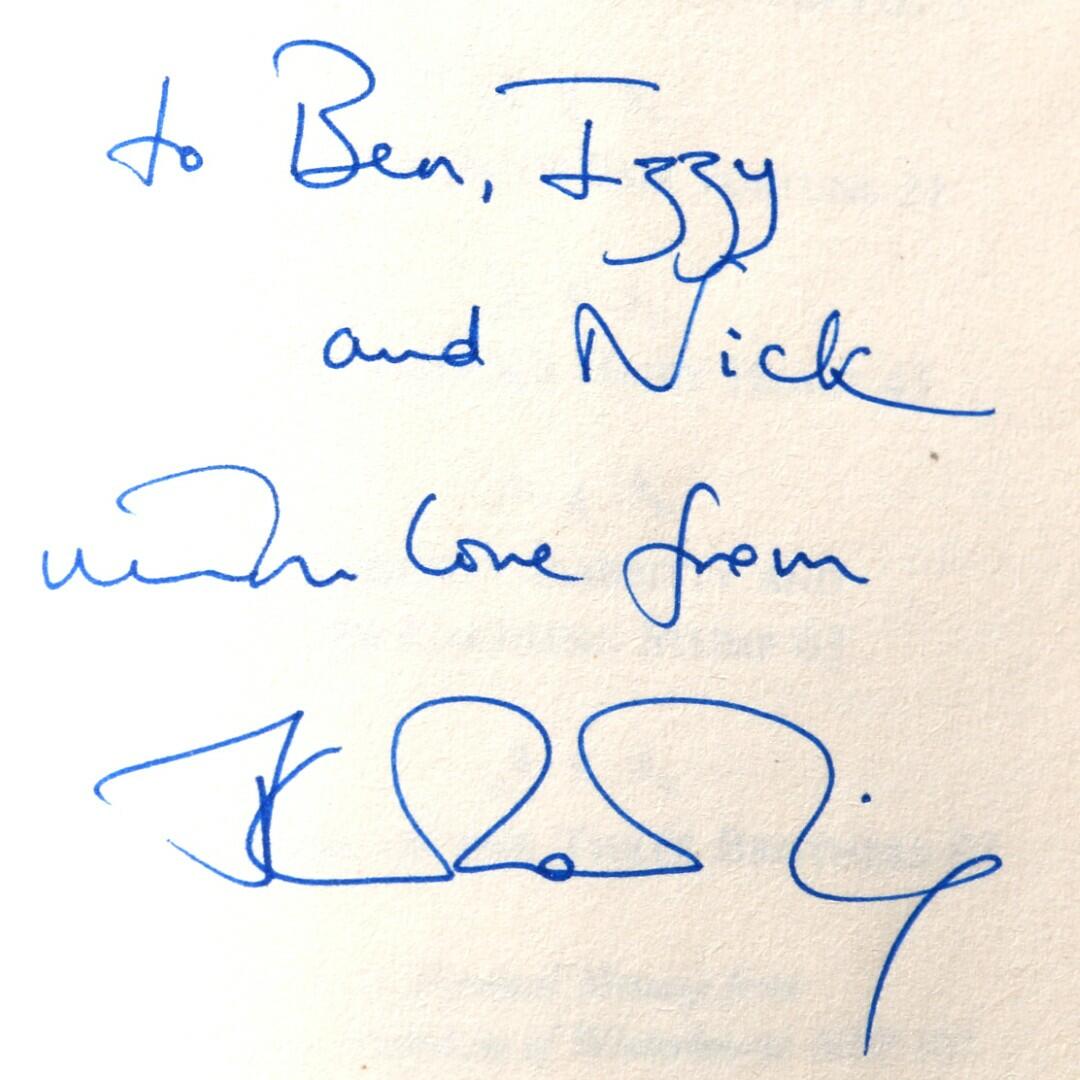 to Ben, Izzy
and Nick
with love from
JK Rowling